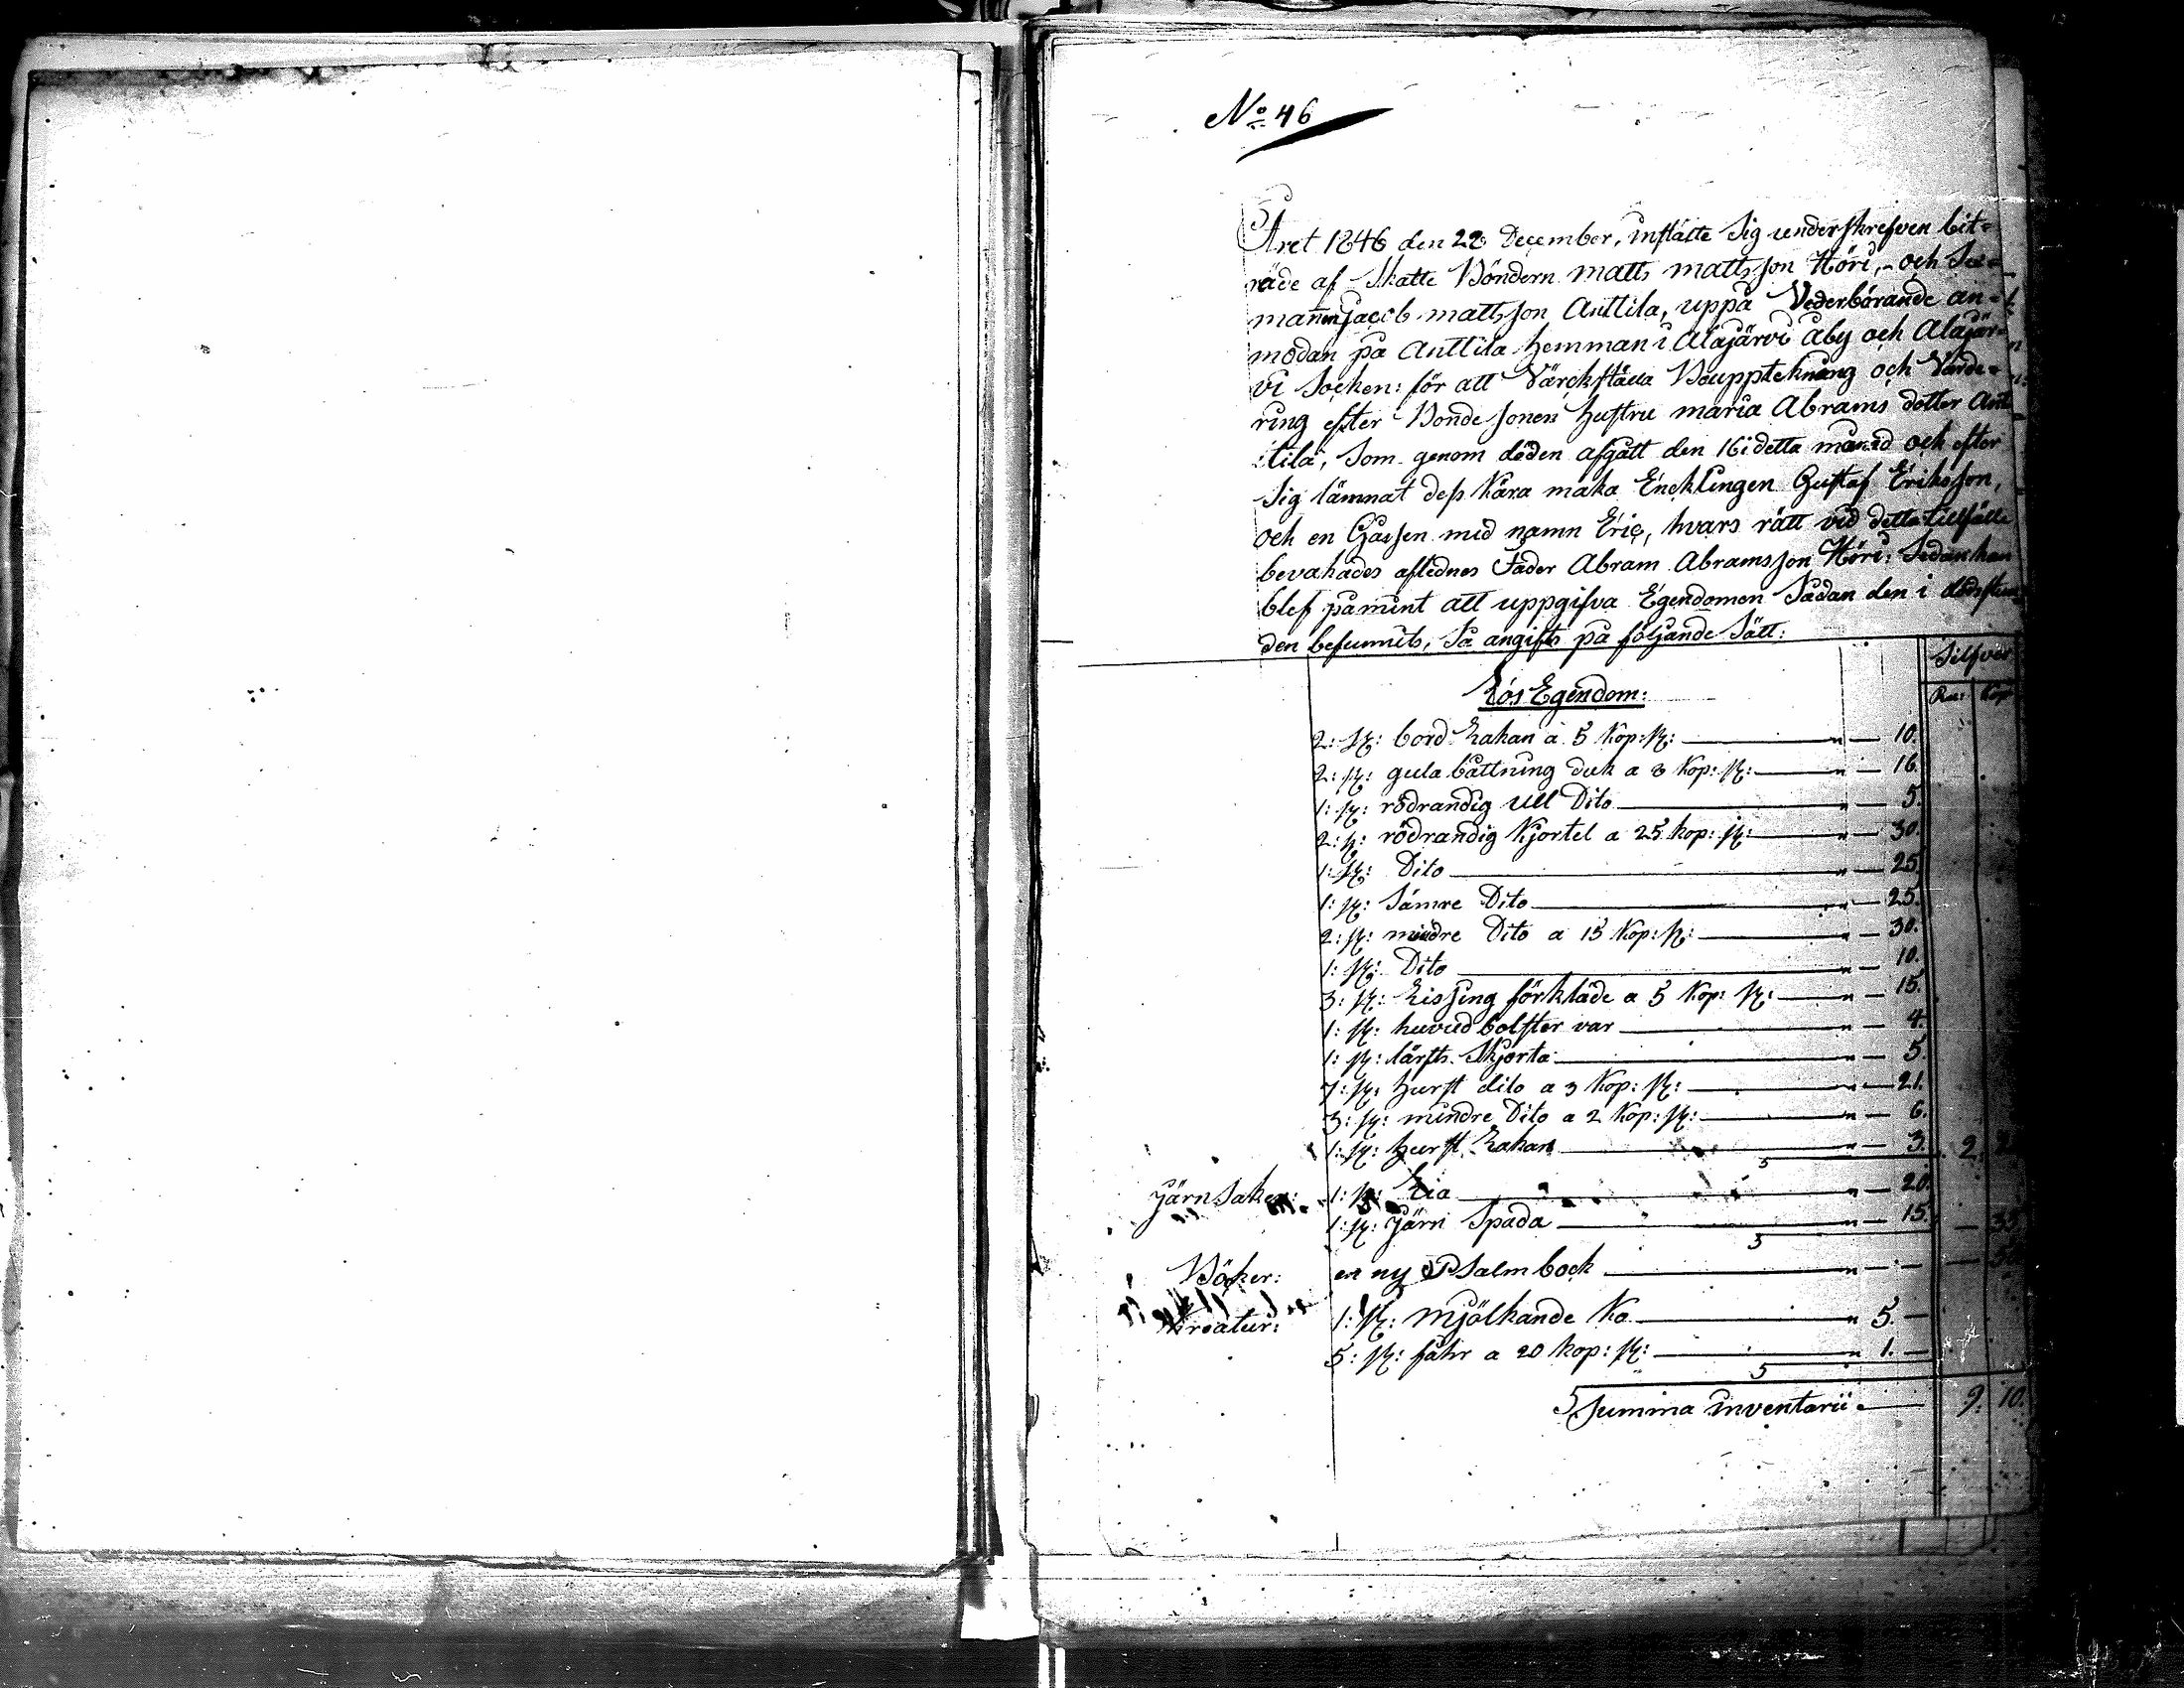 No 46
Året 1846 den 22 December, instälte Sig underskrefven bit=
räde af Skatte Bondern matts mattsson Höri, och
mannen Jacob mattsson Anttila, uppå Vederbörande an=
modan på Anttila hemman i Alajärvi Aby och Alajär=
vi Socken: för att Värckställa Boupptekning och Värde=
ring efter Bonde Sonen hustru maria Abrams dotter Ant
tila, Som genom döden afgått den 16 i detta månad och efter
Sig lämnat dess kära maka Encklingen Gustaf Eriksson,
och en Gossen med namn Eric, hvars rätt vid detta tillfälle
bevakades aflednes Fader Abram Abramsson Höri: Sedan han
blef påmint att uppgifva Egendomen Sådan den i dödsstun=
den befunnits, Så angifts på följande Sätt:
Silfver
Lös Egendom:
Ru: Kop
2: st: bord Lakan a 5 Kop: st: " — 10.
2: st: gula båttning duk a 8 Kop: st: " — 16.
1: st: rödrandig ull Dito " — 5.
2: st: rödrandig Kjortel a 25 kop: st: " — 30.
1: st: Dito " — 25.
1: st: Sämre Dito " — 25.
2: st: mindre Dito a 15 Kop: st: " — 30.
1: st: Dito " — 10.
3: st: Lissing förkläde a 5 Kop: st: " — 15.
1: st: huvud bolster var " — 4.
1: st: lärfts Skjorta " — 5.
7: st: hurst dito a 3 Kop: st: " — 21.
3: st: mindre Dito a 2 Kop: st: " — 6.
1: st: hurst Lakan " — 3. 2.
Järn Saker: 1: st: Lia " — 20.
1: st: Järn Spada " — 15. — 35
Böker: en ny Psalm bock " — —
Kreatur: 1: st: Mjölkande Ko " 5. —
5: st: fåhr a 20 kop: st: " 1. —
Summa inventarii 9. 10.